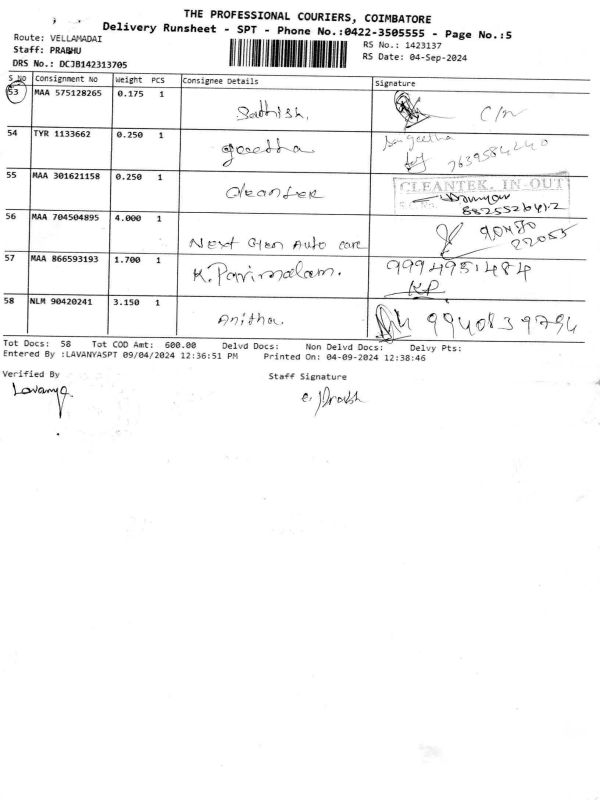 THE PROFESSIONAL COURIERS, COIMBATORE
Delivery Runsheet - SPT - Phone No.:0422-3505555 - Page No.:5
Route: VELLAMADAI
RS No.: 1423137
Staff: PRABHU
RS Date: 04-Sep-2024
DRS No.: DCJB142313705
S No Consignment No Weight PCS Consignee Details Signature
53 MAA 575128265 0.175 1 Sathish.
54 TYR 1133662 0.250 1 geetha Sangeetha
7639584240
55 MAA 301621158 0.250 1 CLEANTEK. IN-OUT
8825526412
56 MAA 704504895 4.000 1 Next Gen Auto care 90480
22055
57 MAA 866593193 1.700 1 K. Parimalam. 9994951484
KP
58 NLM 90420241 3.150 1 Anitha. 9940839794
Tot Docs: 58 Tot COD Amt: 600.00 Delvd Docs: Non Delvd Docs: Delvy Pts:
Entered By :LAVANYASPT 09/04/2024 12:36:51 PM Printed On: 04-09-2024 12:38:46
Verified By Staff Signature
Lavanya